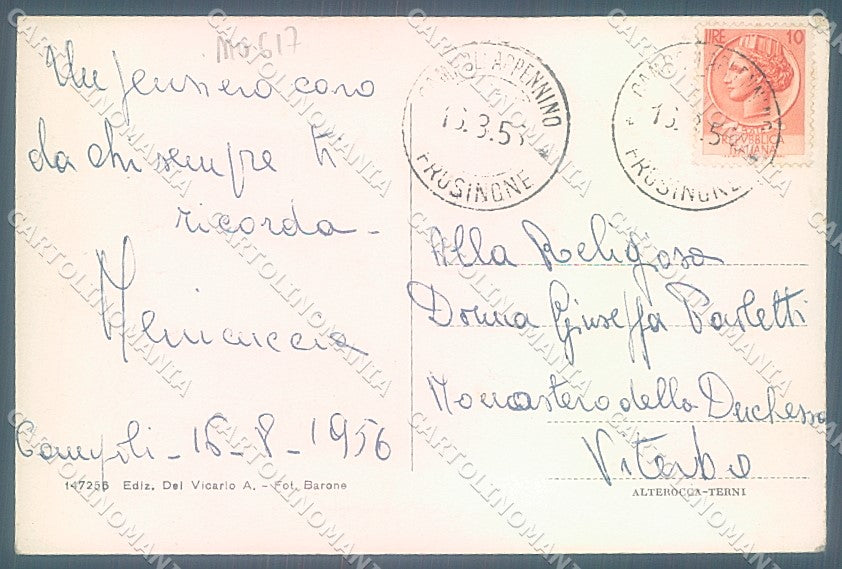 Mo 617
Un pensiero caro
da chi sempre ti
ricorda -
Menicuccia
Campoli - 16 - 8 - 1956
147256 Ediz. Del Vicario A. - Fot. Barone
CAMPOLI APPENNINO
FROSINONE
CAMPOLI APPENNINO
FROSINONE
LIRE 10
REPUBBLICA
ITALIANA
Alla Religiosa
Donna Giuseffa Paoletti
Monastero della Duchessa
Viterbo
ALTEROCCA-TERNI
CARTOLINOMANIA